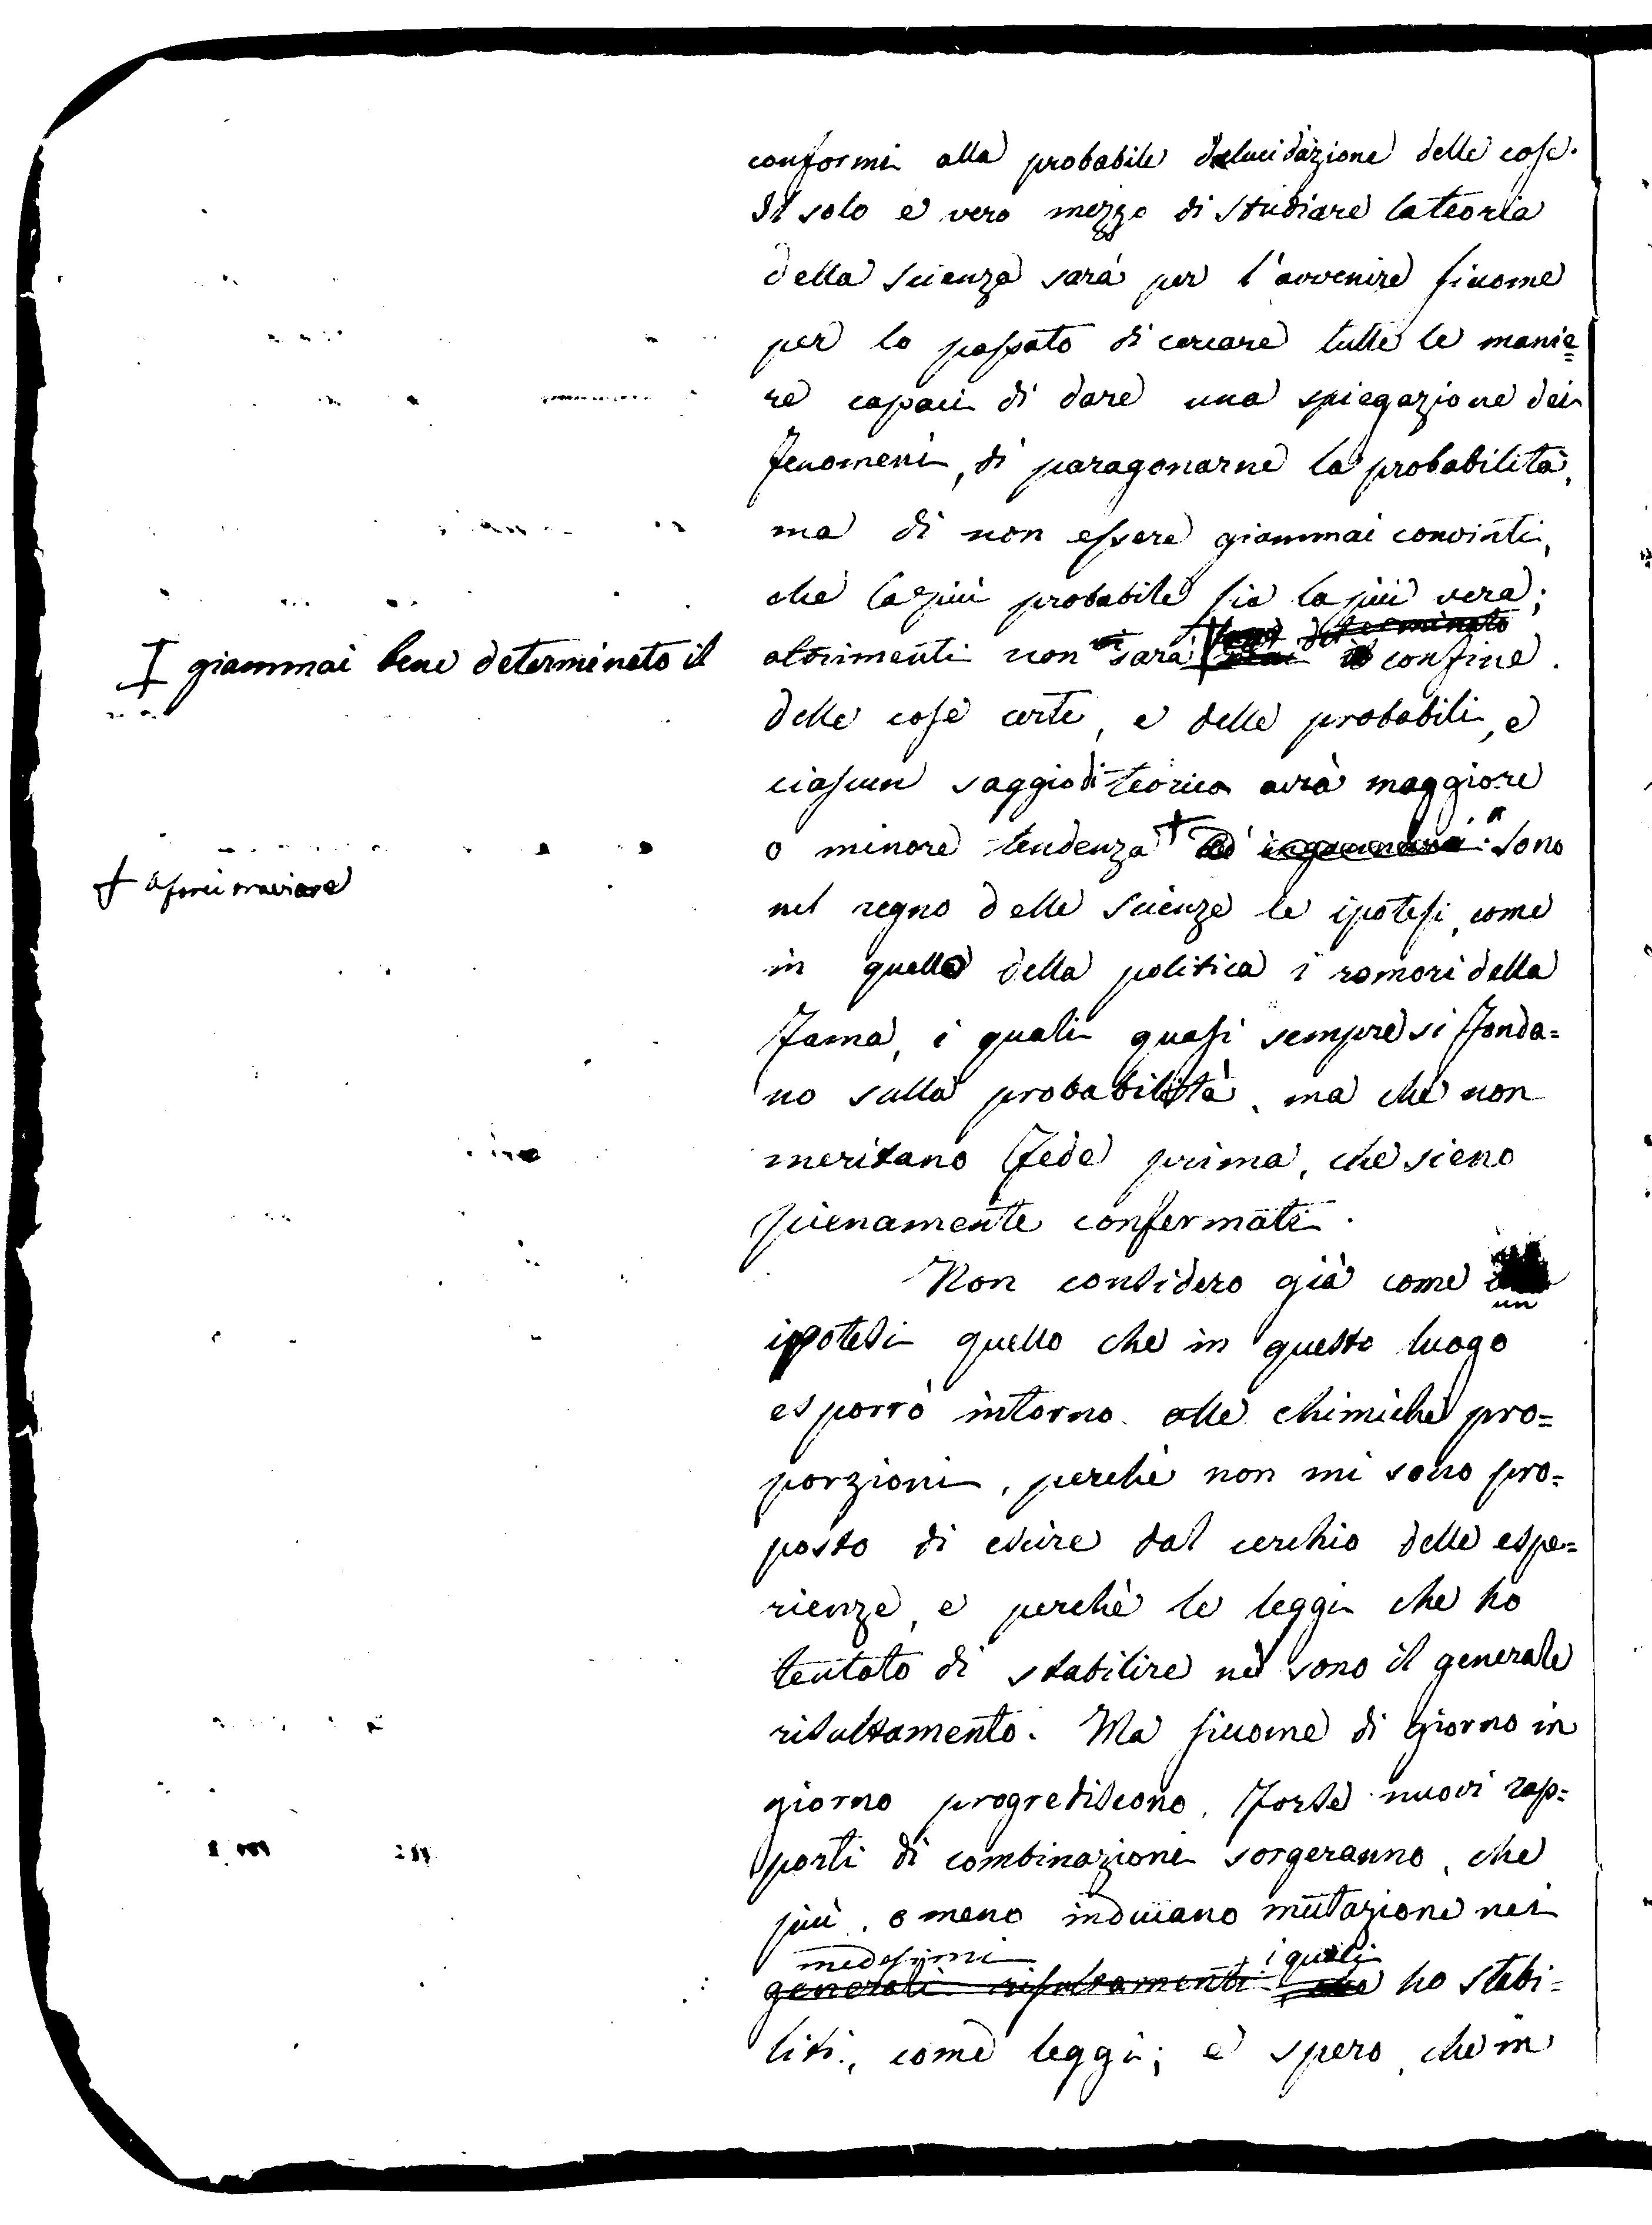 conformi alla probabile delucidazione delle cose.
Il solo e vero mezzo di studiare la teoria
della scienza sarà per l'avvenire siccome
per lo passato di cercare tutte le manie=
re capaci di dare una spiegazione dei
fenomeni, di paragonarne la probabilità,
ma di non essere giammai convinti,
che la più probabile sia la più vera;
determinato
altrimenti non vi sarà confine
giammai bene determinato il
delle cose certe, e delle probabili, e
ciascun saggio di teorica avrà maggiore
o minore tendenza Sono
a farci traviare
nel regno delle scienze le ipotesi, come
in quello della politica i romori della
Fama, i quali quasi sempre si fonda=
no sulla probabilità, ma che non
meritano fede prima, che sieno
pienamente confermati.
Non considero già come
un
ipotesi quello che in questo luogo
esporrò intorno alle chimiche pro=
porzioni, perchè non mi sono pro=
posto di escire dal cerchio delle espe=
rienze, e perchè le leggi che ho
tentato di stabilire ne sono il generale
risultamento. Ma siccome di giorno in
giorno progrediscono, forse nuovi rap=
porti di combinazione sorgeranno, che
più, o meno inducano mutazione nei
medesimi i quali
generali risultamenti che ho stabi=
liti, come leggi; e spero, che in